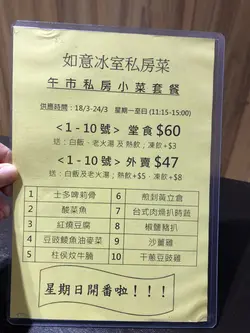 如意冰室私房菜
午市私房小菜套餐
供應時間：18/3-24/3 星期一至日 (11:15-15:00)
<1-10號> 堂食 $60
送：白飯、老火湯 及 熱飲；凍飲+$3
<1-10號> 外賣 $47
送：白飯及老火湯；熱飲+$5、凍飲+$8
1 士多啤梨骨
2 酸菜魚
3 紅燒豆腐
4 豆豉鯪魚油麥菜
5 柱侯炆牛腩
6 煎封黃立倉
7 台式肉燥扒時蔬
8 椒鹽豬扒
9 沙薑雞
10 干蔥豆豉雞
星期日開番啦！！！